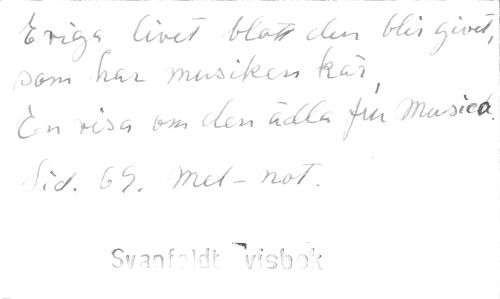 Eviga livet blott den blir givet,
som har musiken kär,
En visa om den ädla fru Musica.
Sid. 69. Mel-not.
Svanfeldt visbok